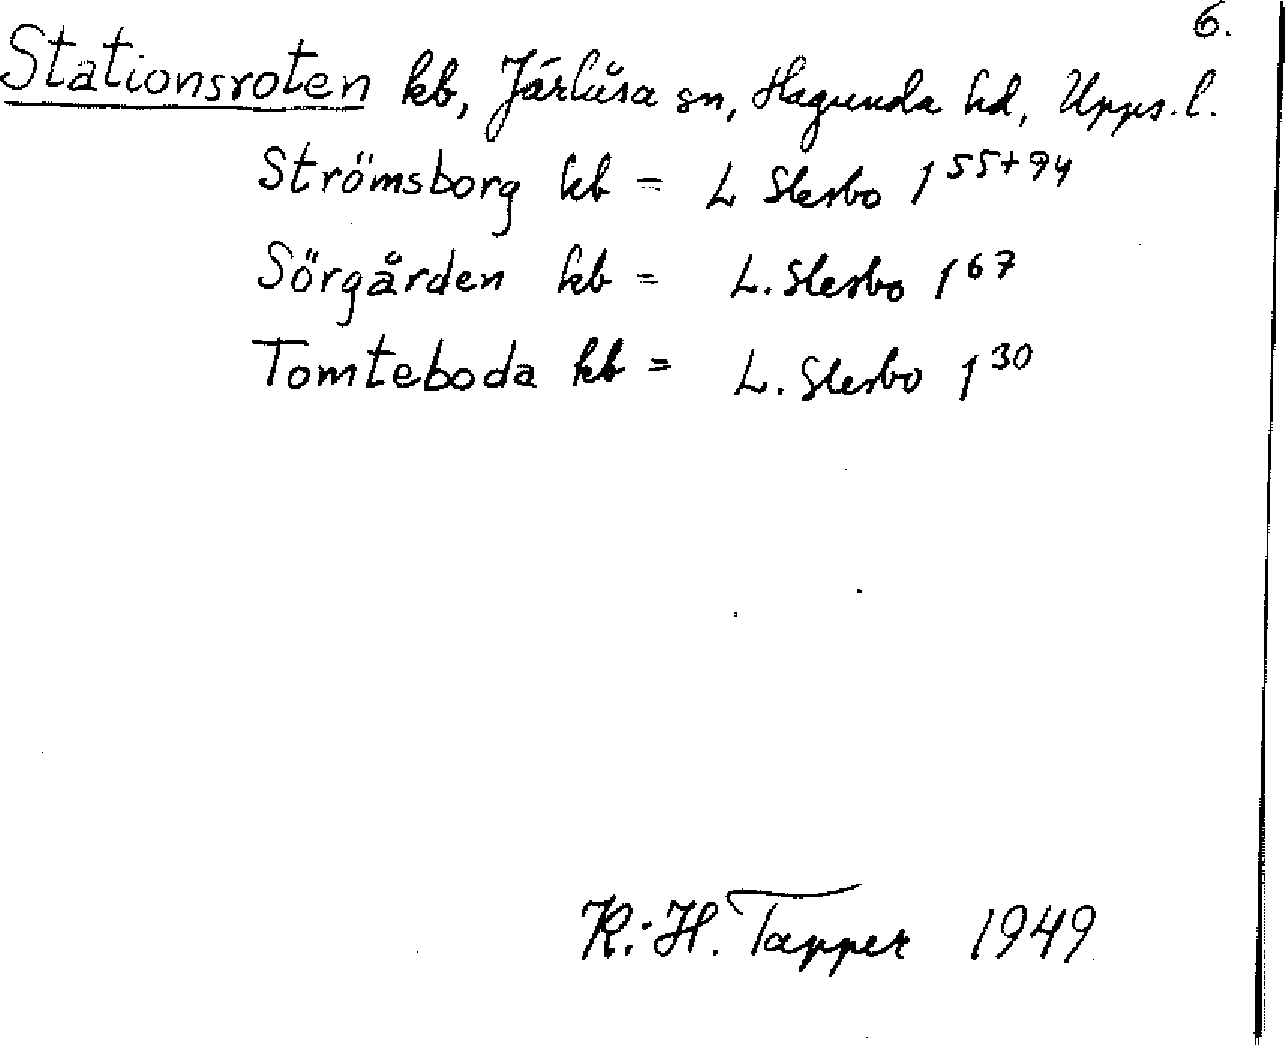 6.
Stationsroten kb, Järlåsa sn, Hagunda hd, Upps. l.
Strömsborg kb = L Slesbo 1 55+94
Sörgården kb = L. Slesbo 1 67
Tomteboda kb = L. Slesbo 1 30
K.-H. Tapper 1949